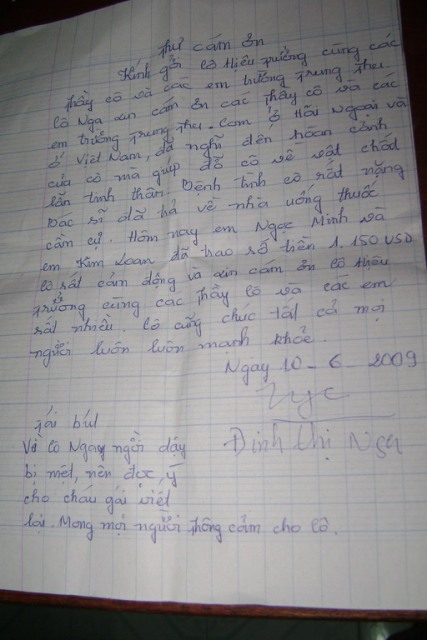 Thư cám ơn
Kính gởi cô Hiệu trưởng cùng các
thầy cô và các em trường Trưng Thu.
Cô Nga xin cám ơn các thầy cô và các
em trường Trưng Thu. Com ở Hải Ngoại và
ở Việt Nam, đã nghĩ đến hoàn cảnh
của cô mà giúp đỡ cô về vật chất
lẫn tinh thần. Bệnh tình cô rất nặng
bác sĩ đã trả về nhà uống thuốc
cầm cự. Hôm nay em Ngọc Minh và
em Kim Loan đã trao số tiền 1.150 USD
Cô rất cảm động và xin cám ơn cô Hiệu
trưởng cùng các thầy cô và các em
rất nhiều. Cô cũng chúc tất cả mọi
người luôn luôn mạnh khỏe.
Ngay 10-6-2009
Đinh Thị Nga
Tái bút
Vì cô Nga ngồi dậy
bị mệt, nên đọc, ý
cho cháu gái viết
lại. Mong mọi người thông cảm cho cô.